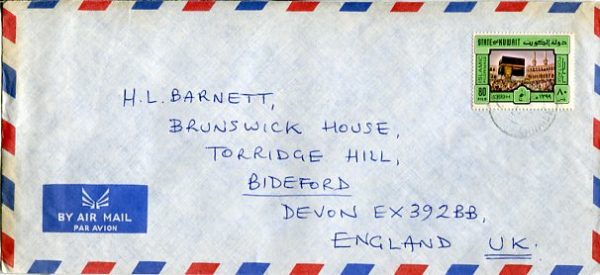 STATE OF KUWAIT دولة الكويت
80 FILS
٨٠
H.L. BARNETT,
BRUNSWICK HOUSE,
TORRIDGE HILL,
BIDEFORD
DEVON EX392BB,
ENGLAND UK.
BY AIR MAIL
PAR AVION